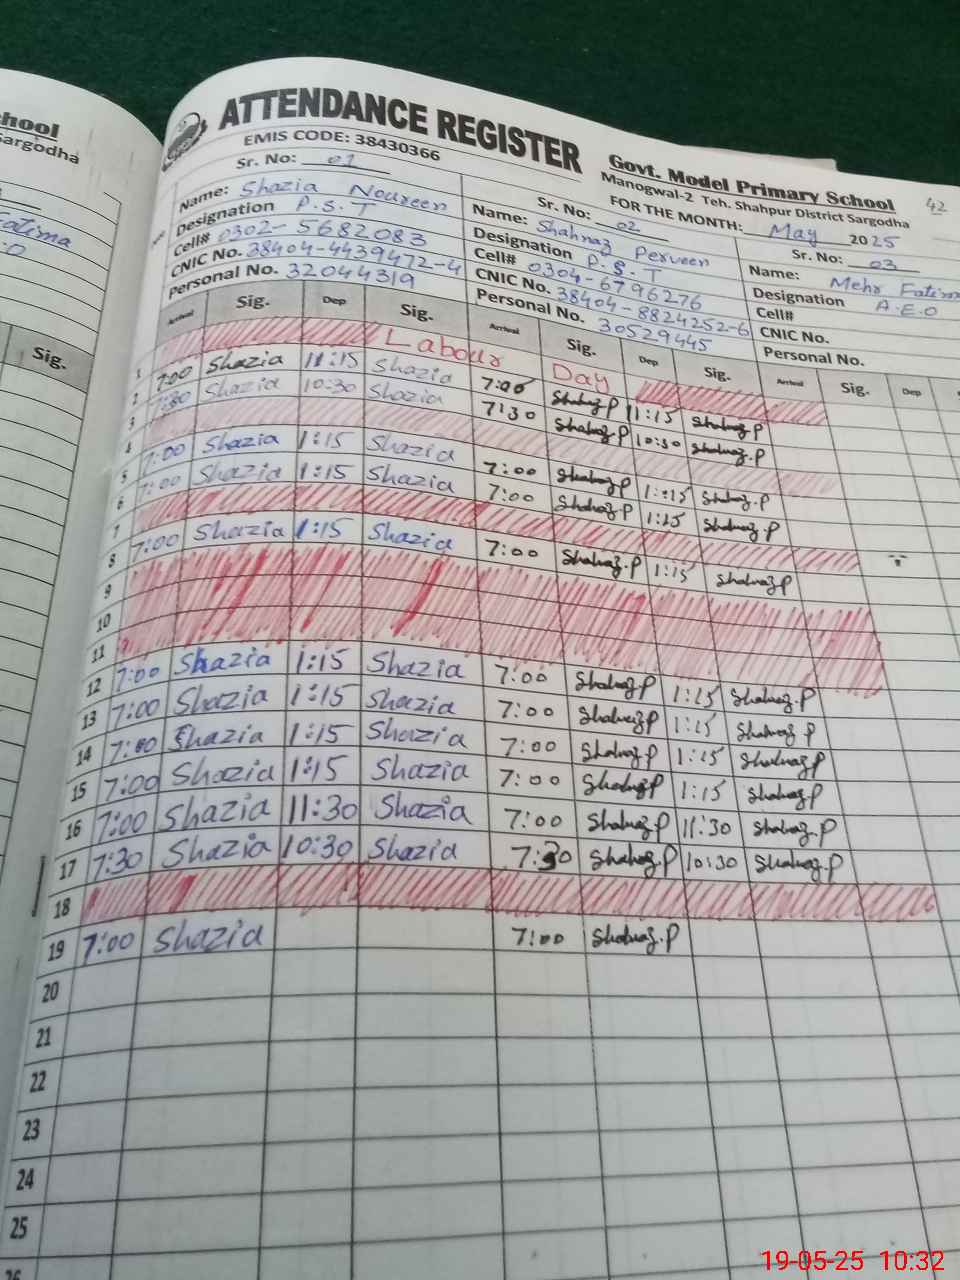 hool
Sargodha
Fatima
Sig.
ATTENDANCE REGISTER
EMIS CODE: 38430366
Govt. Model Primary School
Manogwal-2 Teh. Shahpur District Sargodha
42
FOR THE MONTH: May 2025
Sr. No: 01
Name: Shazia Noureen
Designation P.S.T
Cell# 0302-5682083
CNIC No. 38404-4439472-4
Personal No. 32044319
Sr. No: 02
Name: Shahnaz Perveen
Designation P.S.T
Cell# 0304-6796276
CNIC No. 38404-8824252-6
Personal No. 30529445
Sr. No: 03
Name: Mehr Fatima
Designation A.E.O
Cell#
CNIC No.
Personal No.
Arrival Sig. Dep Sig. Arrival Sig. Dep Sig. Arrival Sig. Dep
1 Labour Day
2 7:00 Shazia 11:15 Shazia 7:00 Shahnaz.P 11:15 Shahnaz.P
3 7:30 Shazia 10:30 Shazia 7:30 Shahnaz.P 10:30 Shahnaz.P
4
5 7:00 Shazia 1:15 Shazia 7:00 Shahnaz.P 1:15 Shahnaz.P
6 7:00 Shazia 1:15 Shazia 7:00 Shahnaz.P 1:15 Shahnaz.P
7
8 7:00 Shazia 1:15 Shazia 7:00 Shahnaz.P 1:15 Shahnaz.P
9
10
11
12 7:00 Shazia 1:15 Shazia 7:00 Shahnaz.P 1:15 Shahnaz.P
13 7:00 Shazia 1:15 Shazia 7:00 Shahnaz.P 1:15 Shahnaz.P
14 7:00 Shazia 1:15 Shazia 7:00 Shahnaz.P 1:15 Shahnaz.P
15 7:00 Shazia 1:15 Shazia 7:00 Shahnaz.P 1:15 Shahnaz.P
16 7:00 Shazia 11:30 Shazia 7:00 Shahnaz.P 11:30 Shahnaz.P
17 7:30 Shazia 10:30 Shazia 7:30 Shahnaz.P 10:30 Shahnaz.P
18
19 7:00 Shazia 7:00 Shahnaz.P
20
21
22
23
24
25
26
19-05-25 10:32